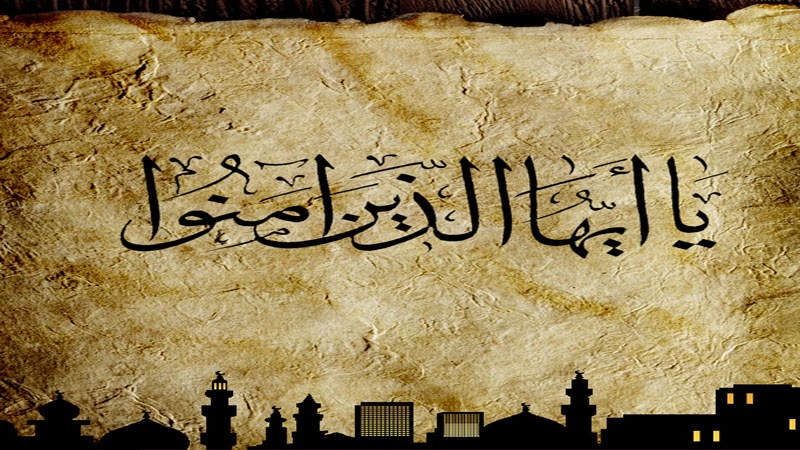 يَا أَيُّهَا الَّذِينَ امَنُوا